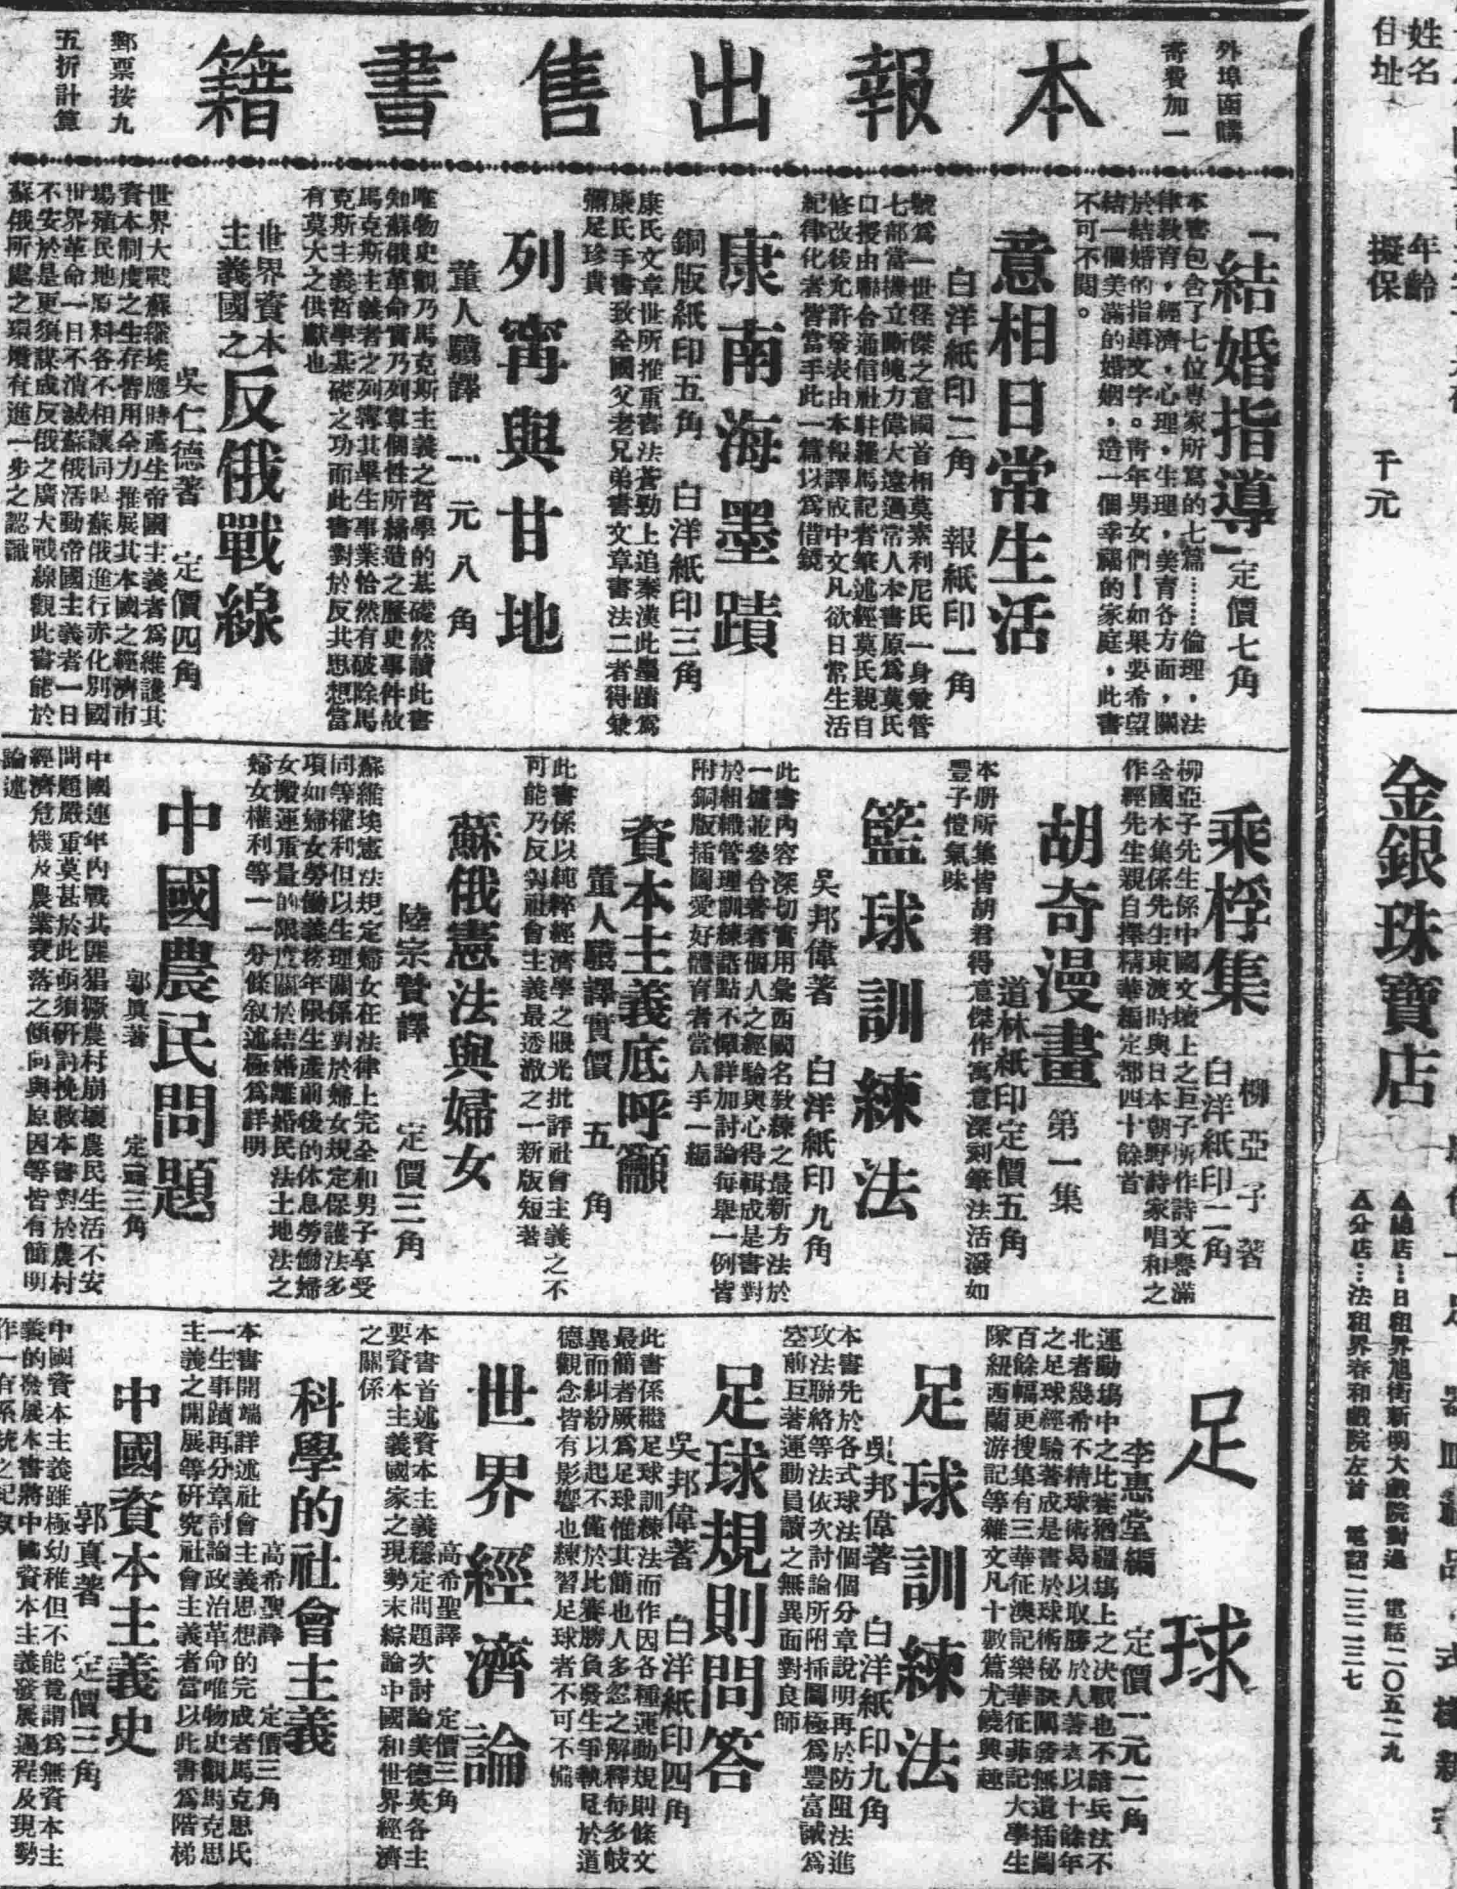 本報出售書籍
外埠函購
寄費加一
郵票按九
五折計算
「結婚指導」定價七角
本書包含了七位專家所寫的七篇……倫理，法
律教育，經濟，心理，生理，美育各方面，關
於結婚的指導文字。青年男女們！如果要希望
結一個美滿的婚姻，造一個幸福的家庭，此書
不可不閱。
意相日常生活
白洋紙印二角 報紙印一角
號為一世怪傑之意國首相莫索利尼氏一身兼管
七部當機立斷魄力偉大遠過常人本書原為莫氏
口授由聯合通信社駐羅馬記者筆述經莫氏親自
修改後允許發表由本報譯成中文凡欲日常生活
紀律化者皆當手此一篇以為借鏡
康南海墨蹟
銅版紙印五角 白洋紙印三角
康氏文章世所推重書法蒼勁上追秦漢此墨蹟為
康氏手書致全國父老兄弟書文章書法二者得兼
彌足珍貴
列甯與甘地
董人驥譯 一元八角
唯物史觀乃馬克斯主義之哲學的基礎然讀此書
知蘇俄革命實乃列寗個性所締造之歷史事件故
馬克斯主義者之列寗其畢生事業恰然有破除馬
克斯主義哲學基礎之功而此書對於反共思想當
有莫大之供獻也
世界資本
主義國之反俄戰線
吳仁德著 定價四角
世界大戰蘇維埃應時產生帝國主義者為維護其
資本制度之生存皆用全力推展其本國之經濟市
場殖民地原料各不相讓同時蘇俄進行赤化別國
世界革命一日不消滅蘇俄活動帝國主義者一日
不安於是更須謀成反俄之廣大戰線觀此書能於
蘇俄所處之環境有進一步之認識
乘桴集
柳亞子著
白洋紙印二角
柳亞子先生係中國文壇上之巨子所作詩文譽滿
全國本集係先生東渡時與日本朝野詩家唱和之
作經先生親自擇精華編定都四十餘首
胡奇漫畫 第一集
道林紙印定價五角
本册所集皆胡君得意傑作寓意深刻筆法活潑如
豐子愷氣味
籃球訓練法
吳邦偉著 白洋紙印九角
此書內容深切實用彙西國名教練之最新方法於
一爐並參合著者個人之經驗與心得輯成是書對
於組織管理訓練諸點不憚詳加討論每舉一例皆
附銅版插圖愛好體育者當人手一編
資本主義底呼籲
董人驥譯實價 五角
此書係以純粹經濟學之眼光批評社會主義之不
可能乃反對社會主義最透澈之一新版短著
蘇俄憲法與婦女
陸宗贊譯 定價三角
蘇維埃憲法規定婦女在法律上完全和男子享受
同等權利但以生理關係對於婦女規定保護法多
項如婦女勞働義務年限生產前後的休息勞働婦
女搬運重量的限度關於結婚離婚民法土地法之
婦女權利等一一分條叙述極為詳明
中國農民問題
郭眞著 定價三角
中國連年內戰共匪猖獗農村崩壞農民生活不安
問題嚴重莫甚於此亟須研討挽救本書對於農村
經濟危機及農業衰落之傾向與原因等皆有簡明
論述
足球
李惠堂編 定價一元二角
運動塲中之比賽猶疆塲上之決戰也不諳兵法不
北者幾希不精球術曷以取勝於人著者以十餘年
之足球經驗著成是書於球術秘訣闡發無遺插圖
百餘幅更搜集有三華征澳記樂華征菲記大學生
隊紐西蘭游記等雜文凡十數篇尤饒興趣
足球訓練法
吳邦偉著 白洋紙印九角
本書先於各式球法個個分章說明再於防阻法進
攻法聯絡等法依次討論所附插圖極為豐富誠為
空前巨著運動員讀之無異面對良師
足球規則問答
吳邦偉著 白洋紙印四角
此書係繼足球訓練法而作因各種運動規則條文
最簡者厥為足球惟其簡也人多忽之解釋每多歧
異而糾紛以起不僅於比賽勝負發生爭執且於道
德觀念皆有影響也練習足球者不可不備
世界經濟論
高希聖譯 定價三角
本書首述資本主義穩定問題次討論美德英各主
要資本主義國家之現勢末綜論中國和世界經濟
之關係
科學的社會主義
高希聖譯 定價三角
本書開端詳述社會主義思想的完成者馬克思氏
一生事蹟再分章討論政治革命唯物史觀馬克思
主義之開展等研究社會主義者當以此書為階梯
中國資本主義史
郭真著 定價三角
中國資本主義雖極幼稚但不能竟謂為無資本主
義的發展本書將中國資本主義發展過程及現勢
作一有系統之紀叙
姓名
住址
年齡
擬保
千元
金銀珠寶店
▲總店…日租界旭街新明大戲院對過 電話二〇五二九
▲分店…法租界春和戲院左首 電話二三二三七